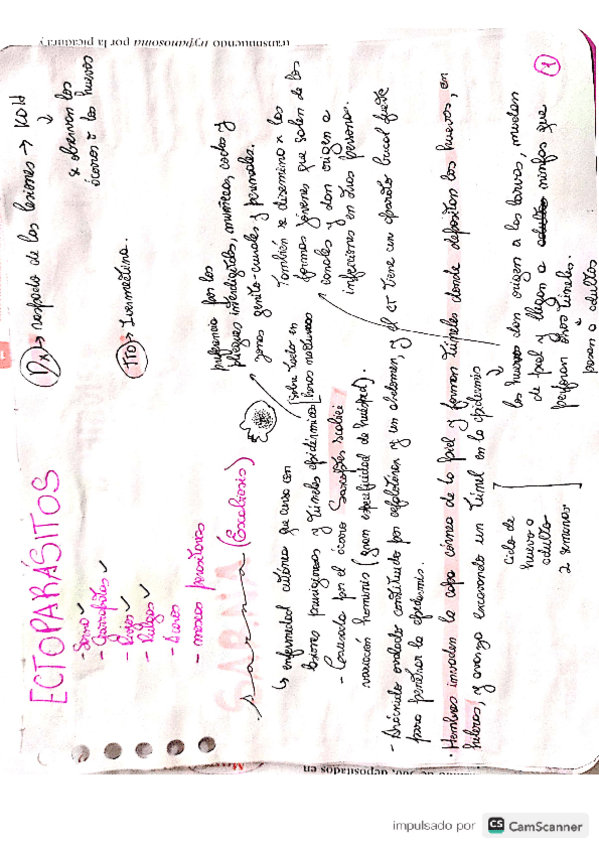 ECTOPARÁSITOS
- Sarna ✓
- Garrapatas ✓
- Piojos ✓
- Pulgas ✓
- Ácaros
- moscas parasitarias
Dx → raspado de las lesiones → KOH
↓
se observan los
ácaros o los huevos
TTO → Ivermectina.
Sarna (Escabiosis)
preferencia por los
pliegues interdigitales, muñecas, codos y
zonas genito-crurales y perineales.
↳ enfermedad cutánea que cursa con
lesiones pruriginosas y túneles epidérmicos
sobre todo en
horas nocturnas
- Causada por el ácaro Sarcoptes scabiei
variación hominis (gran especificidad de huésped).
También se disemina x las
formas jóvenes que salen de los
canales y dan origen a
infecciones en otras personas.
- Arácnido ovalado constituido por cefalotórax y un abdomen, y el CT tiene un aparato bucal fuerte
para penetrar la epidermis.
· Hembras invaden la capa córnea de la piel y forman túneles donde depositan los huevos, en
hileras, y avanza excavando un túnel en la epidermis
Ciclo de
huevo a
adulto
2 semanas
los huevos dan origen a las larvas, mudan
de piel y llegan a adultas ninfas que
perforan otros túneles.
↓
pasan a adultos
1
transmitiendo trypanosoma por la picadura
depositados en
impulsado por CS CamScanner